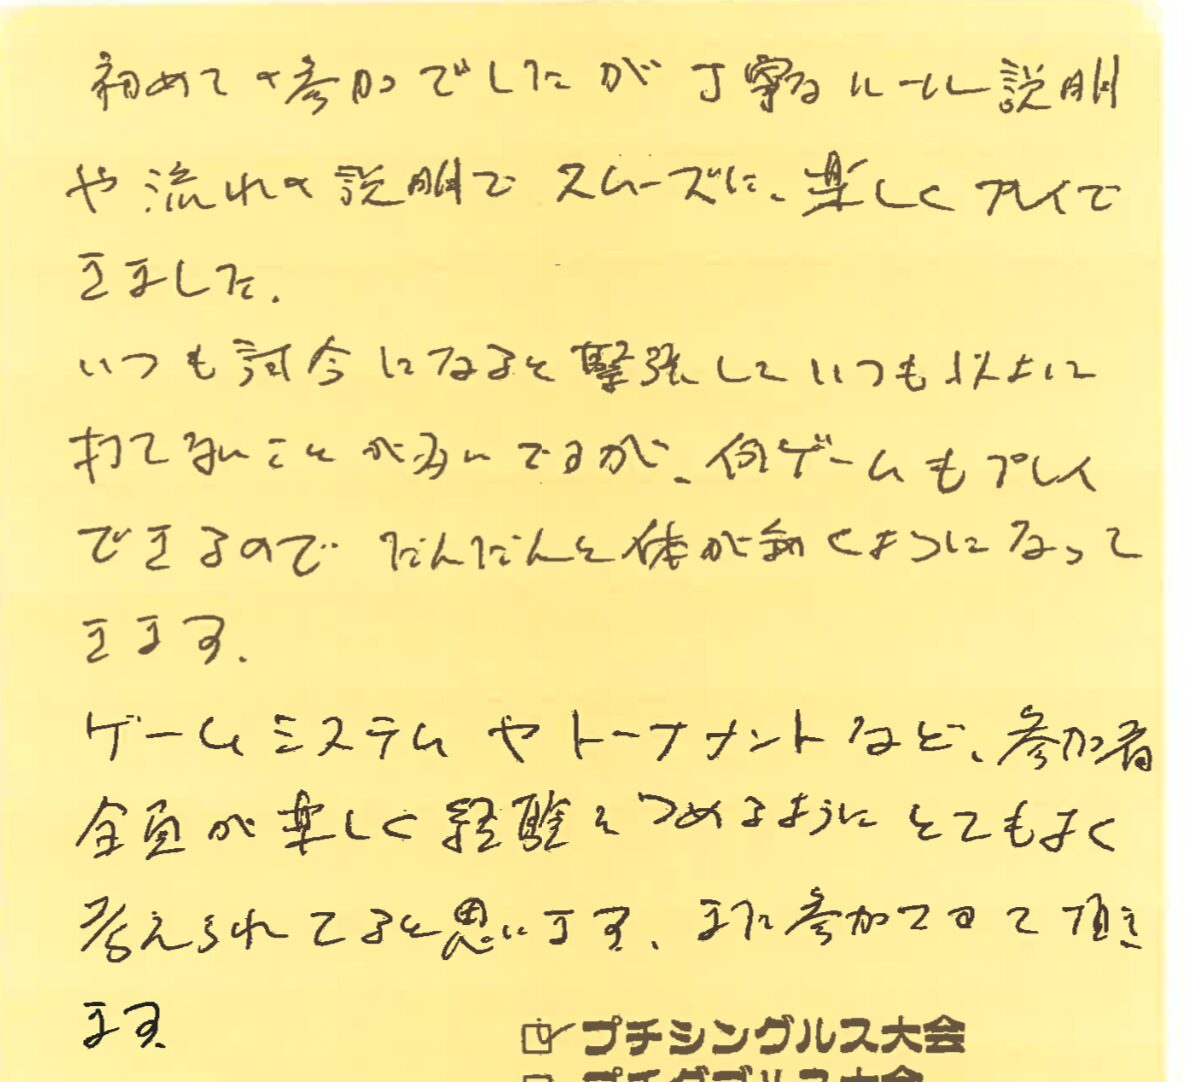 初めての参加でしたが丁寧なルール説明
や流れの説明でスムーズに、楽しくプレイで
きました.
いつも試合になると緊張していつも以上に
打てないことが多いですが、何ゲームもプレイ
できるのでだんだんと体が動くようになって
きます.
ゲームシステムやトーナメントなど、参加者
全員が楽しく経験をつめるようにとてもよく
考えられてると思います、また参加させて頂き
ます.
☑ プチシングルス大会
□ プチダブルス大会